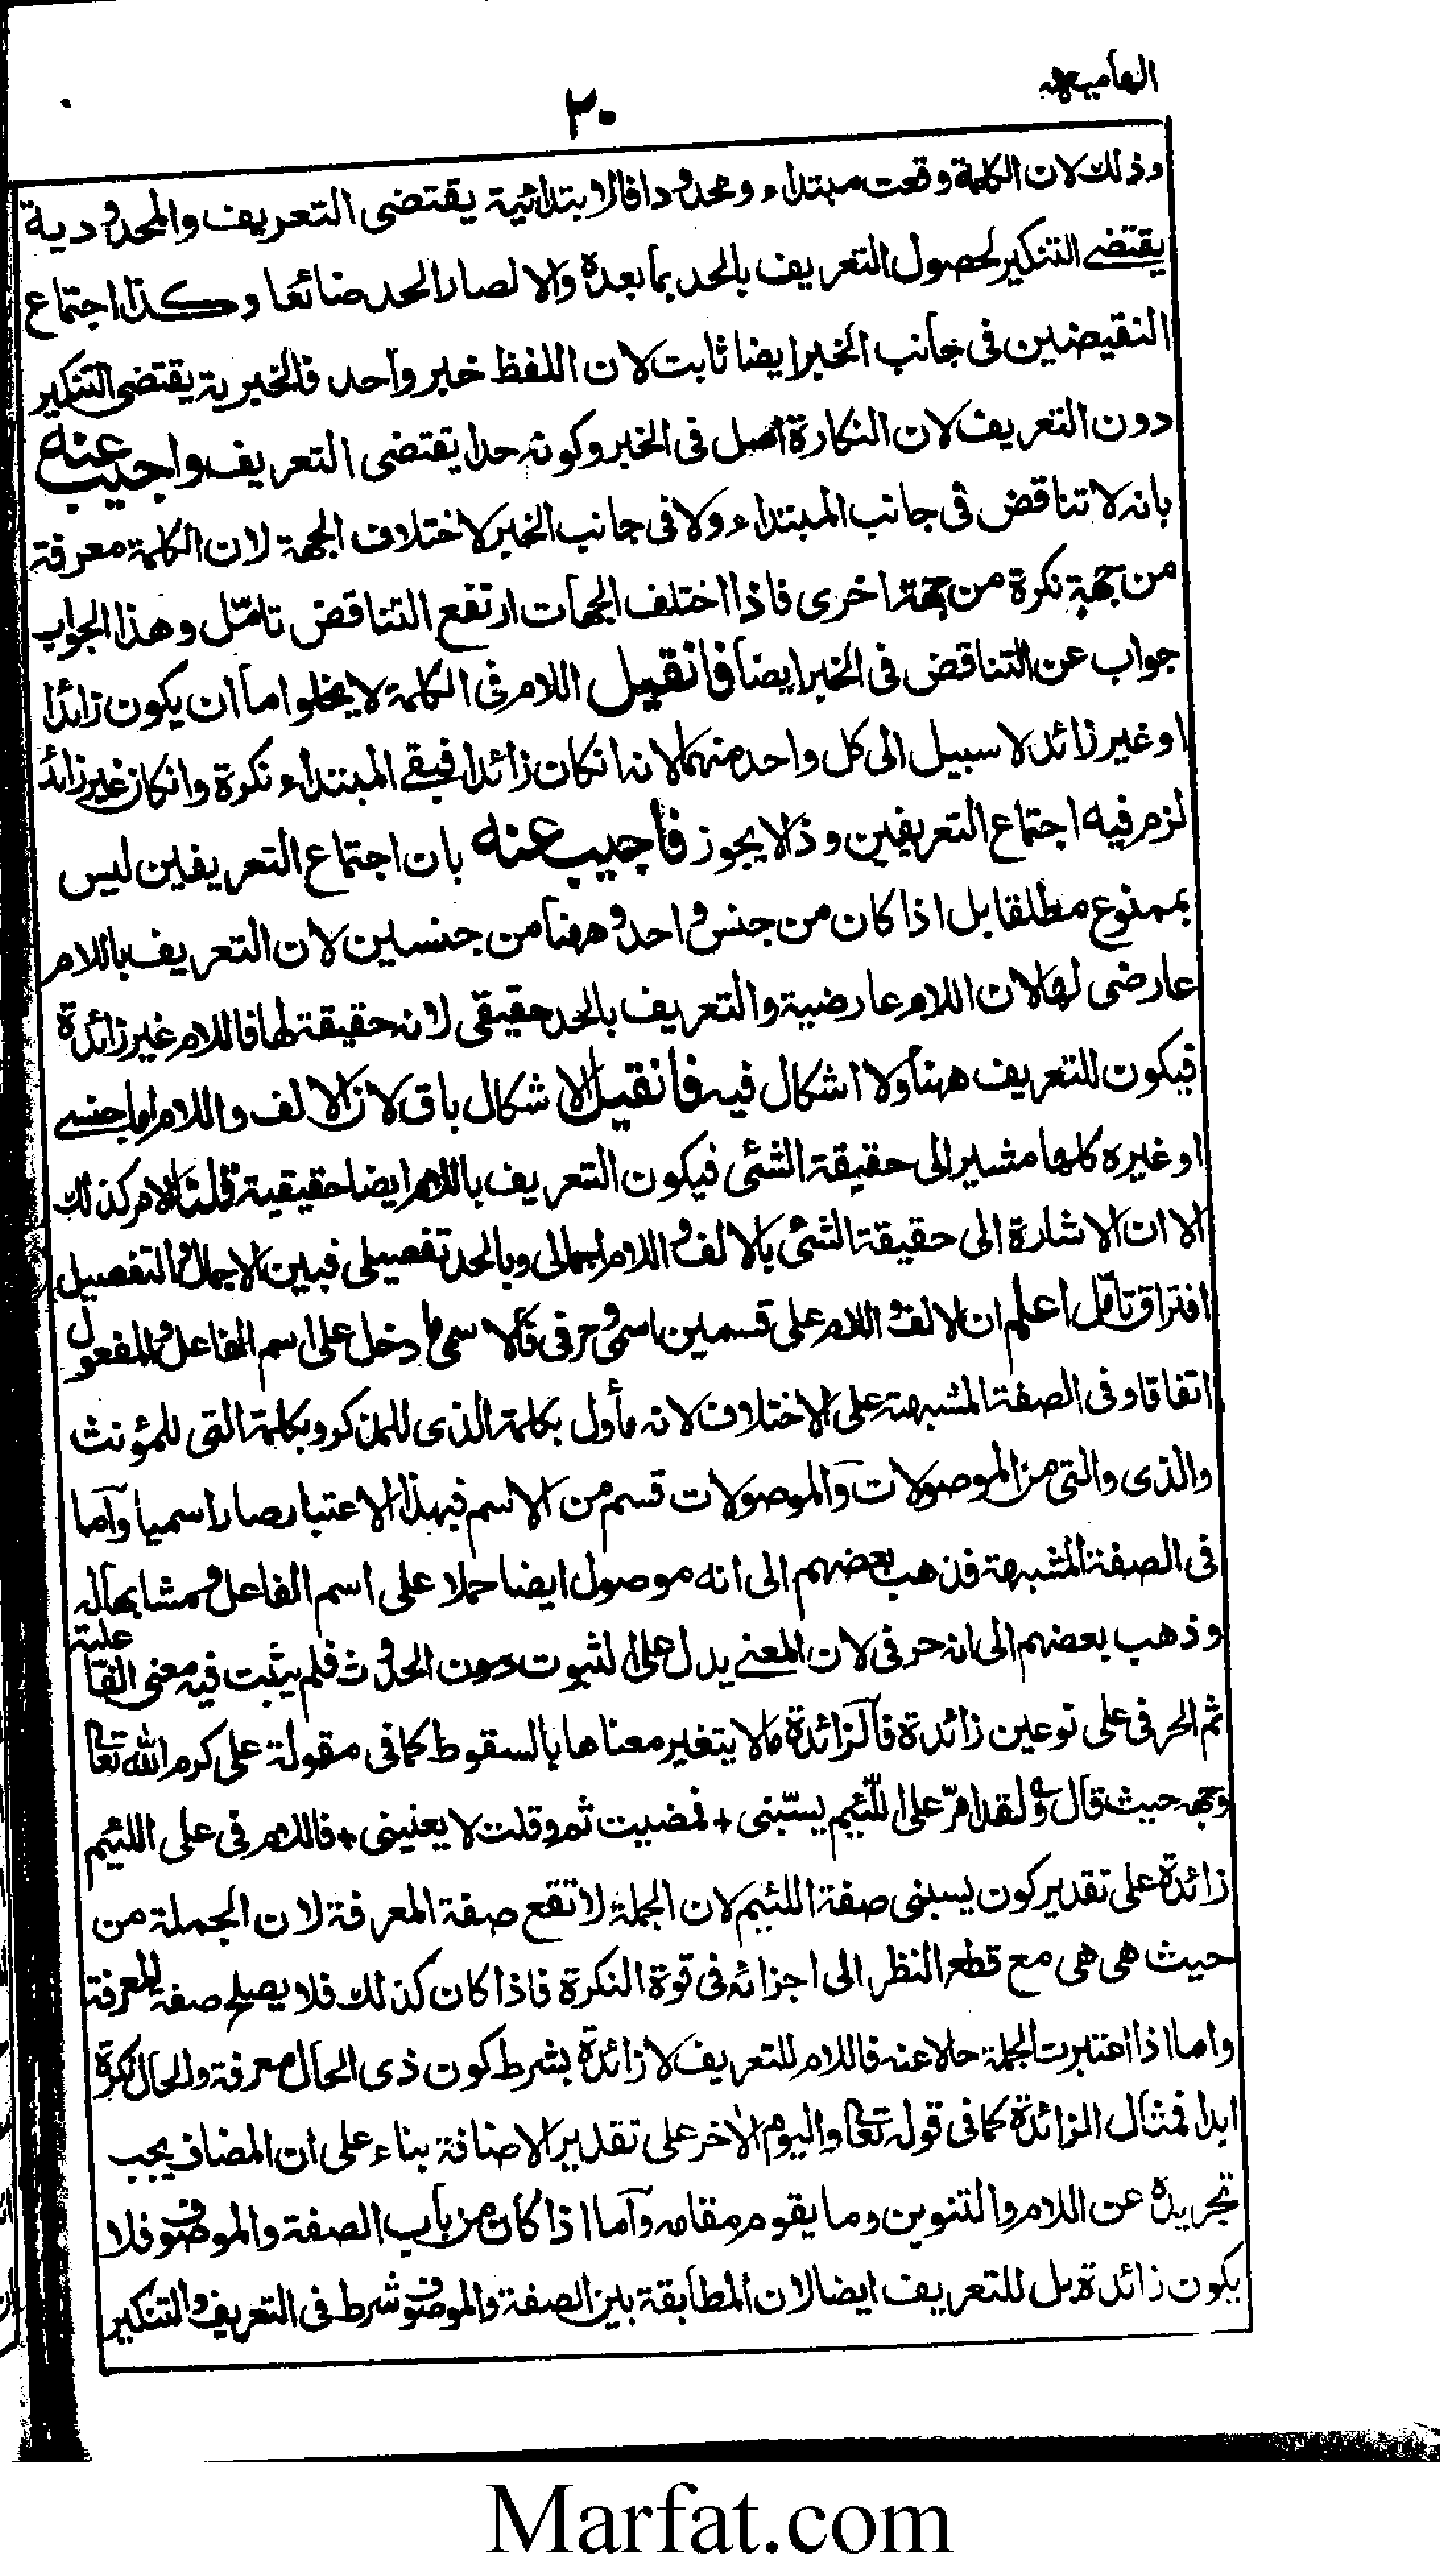 الهاميه
٢٠
وذلك لان الكلمة وقعت مبتداء ومحدودا فالابتدائية يقتضى التعريف والمحدودية
يقتضے التنكير لحصول التعريف بالحد بما بعده والا لصار الحد ضائعا وكذا اجتماع
النقيضين فى جانب الخبر ايضا ثابت لان اللفظ خبر واحد فالخبرية يقتضى التنكير
دون التعريف لان النكارة اصل فى الخبر وكونه حدا يقتضى التعريف واجيب عنه
بانه لا تناقض فى جانب المبتداء ولا فى جانب الخبر لاختلاف الجهة لان الكلمة معرفة
من جهة نكرة من جهة اخرى فاذا اختلف الجهات ارتفع التناقض تامّل وهذا الجواب
جواب عن التناقض فى الخبر ايضا فانقيل اللام فى الكلمة لا يخلوا ما ان يكون زائدا
او غير زائد لا سبيل الى كل واحد منهما لانه انكان زائدا فيبقے المبتداء نكرة وانكان غير زائد
لزم فيه اجتماع التعريفين وذا لا يجوز فاجيب عنه بان اجتماع التعريفين ليس
بممنوع مطلقا بل اذا كان من جنس واحد وههنا من جنسين لان التعريف باللام
عارضى لها لان اللام عارضية والتعريف بالحد حقيقى لانه حقيقة لها فاللام غير زائدة
فيكون للتعريف ههنا ولا اشكال فيه فانقيل الاشكال باق لان الالف واللام اما جنسے
او غيره كلها مشير الى حقيقة الشئى فيكون التعريف باللام ايضا حقيقية قلنا الامر كذلك
الا ان الاشارة الى حقيقة الشئى بالالف واللام اجمالى وبالحد تفصيلى فبين الاجمال والتفصيل
افتراق تامّل اعلم ان الالف واللام على قسمين اسمى وحرفى فالاسمى ما دخل على اسم الفاعل والمفعول
اتفاقا وفى الصفة المشبهة على الاختلاف لانه مأول بكلمة الذى للمذكر وبكلمة التى للمؤنث
والذى والتى من الموصولات والموصولات قسم من الاسم فبهذا الاعتبار صار اسميا وآما
فى الصفة المشبهة فذهب بعضهم الى انه موصول ايضا حملا على اسم الفاعل ومشابها له
وذهب بعضهم الى انه حرفى لان المعنے يدل على الثبوت دون الحدوث فلم يثبت فيه معنى الفاعلية
ثم الحرفى على نوعين زائدة فالزائدة ما لا يتغير معناها بالسقوط كما فى مقولة على كرم الله تعالى
وجهه حيث قال ولقد امرّ على اللّئيم يسبّنى + فمضيت ثم وقلت لا يعنينى + فاللام فى على اللئيم
زائدة على تقدير كون يسبنى صفة اللئيم لان الجملة لا تقع صفة المعرفة لان الجملة من
حيث هى هى مع قطع النظر الى اجزائه فى قوة النكرة فاذا كان كذلك فلا يصلح صفة للمعرفة
واما اذا اعتبرت الجملة حالا عنه فاللام للتعريف لا زائدة بشرط كون ذى الحال معرفة والحال نكرة
ابدا فمثال الزائدة كما فى قوله تعالى واليوم الاخر على تقدير الاضافة بناء على ان المضاف يجب
تجريده عن اللام والتنوين وما يقوم مقامه وآما اذا كان من باب الصفة والموصوف فلا
يكون زائدة بل للتعريف ايضا لان المطابقة بين الصفة والموصوف شرط فى التعريف والتنكير
Marfat.com